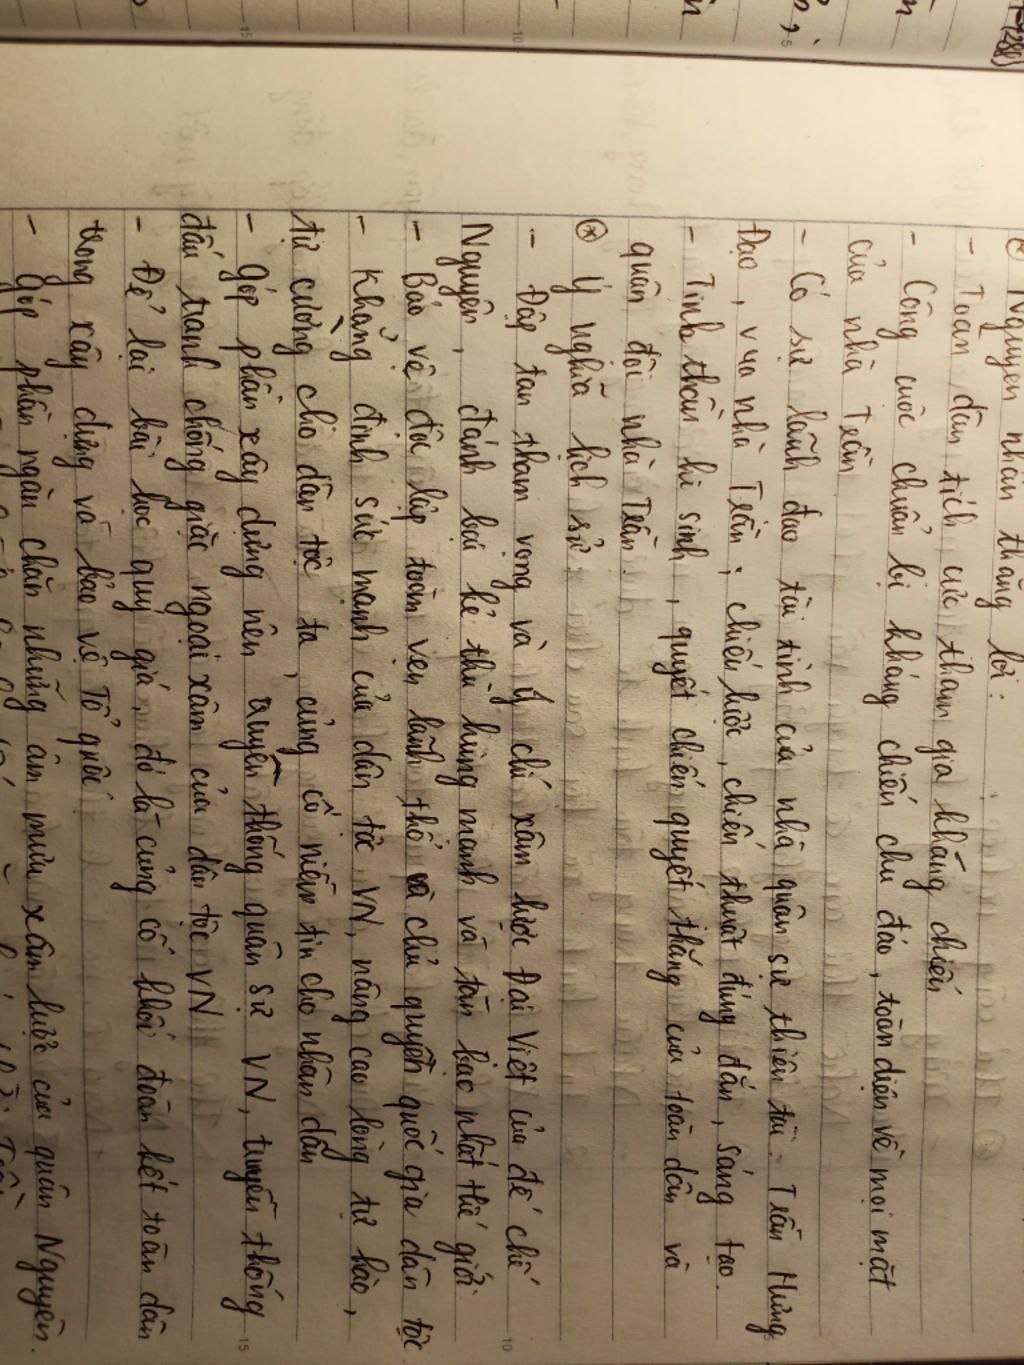 1288)
* Nguyên nhân thắng lợi:
- Toàn dân tích cực tham gia kháng chiến
- Công cuộc chuẩn bị kháng chiến chu đáo, toàn diện về mọi mặt
của nhà Trần
- Có sự lãnh đạo tài tình của nhà quân sự thiên tài Trần Hưng
Đạo, vua nhà Trần; chiến lược, chiến thuật đúng đắn, sáng tạo.
- Tinh thần hi sinh, quyết chiến quyết thắng của toàn dân và
quân đội nhà Trần.
* Ý nghĩa lịch sử:
- Đập tan tham vọng và ý chí xâm lược Đại Việt của đế chế
Nguyên, đánh bại kẻ thù hùng mạnh và tàn bạo nhất thế giới.
- Bảo vệ độc lập toàn vẹn lãnh thổ và chủ quyền quốc gia dân tộc
- Khẳng định sức mạnh của dân tộc VN, nâng cao lòng tự hào,
tự cường cho dân tộc ta, củng cố niềm tin cho nhân dân
- Góp phần xây dựng nên truyền thống quân sự VN, truyền thống
đấu tranh chống giặc ngoại xâm của dân tộc VN
- Để lại bài học quý giá, đó là củng cố khối đoàn kết toàn dân
trong xây dựng và bảo vệ Tổ quốc
- Góp phần ngăn chặn những âm mưu xâm lược của quân Nguyên.